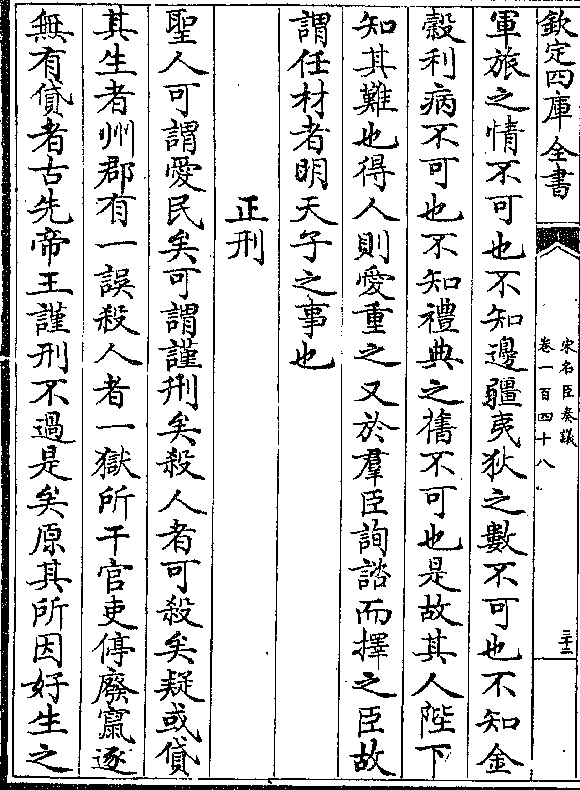 欽定四庫全書
宋名臣奏議
卷一百四十八
三十二
軍旅之情不可也不知邊疆夷狄之數不可也不知金
榖利病不可也不知禮典之舊不可也是故其人陛下
知其難也得人則愛重之又於羣臣詢諮而擇之臣故
謂任材者明天子之事也
正刑
聖人可謂愛民矣可謂謹刑矣殺人者可殺矣疑或貸
其生者州郡有一誤殺人者一獄所干官吏停廢竄逐
無有貸者古先帝王謹刑不過是矣原其所因好生之